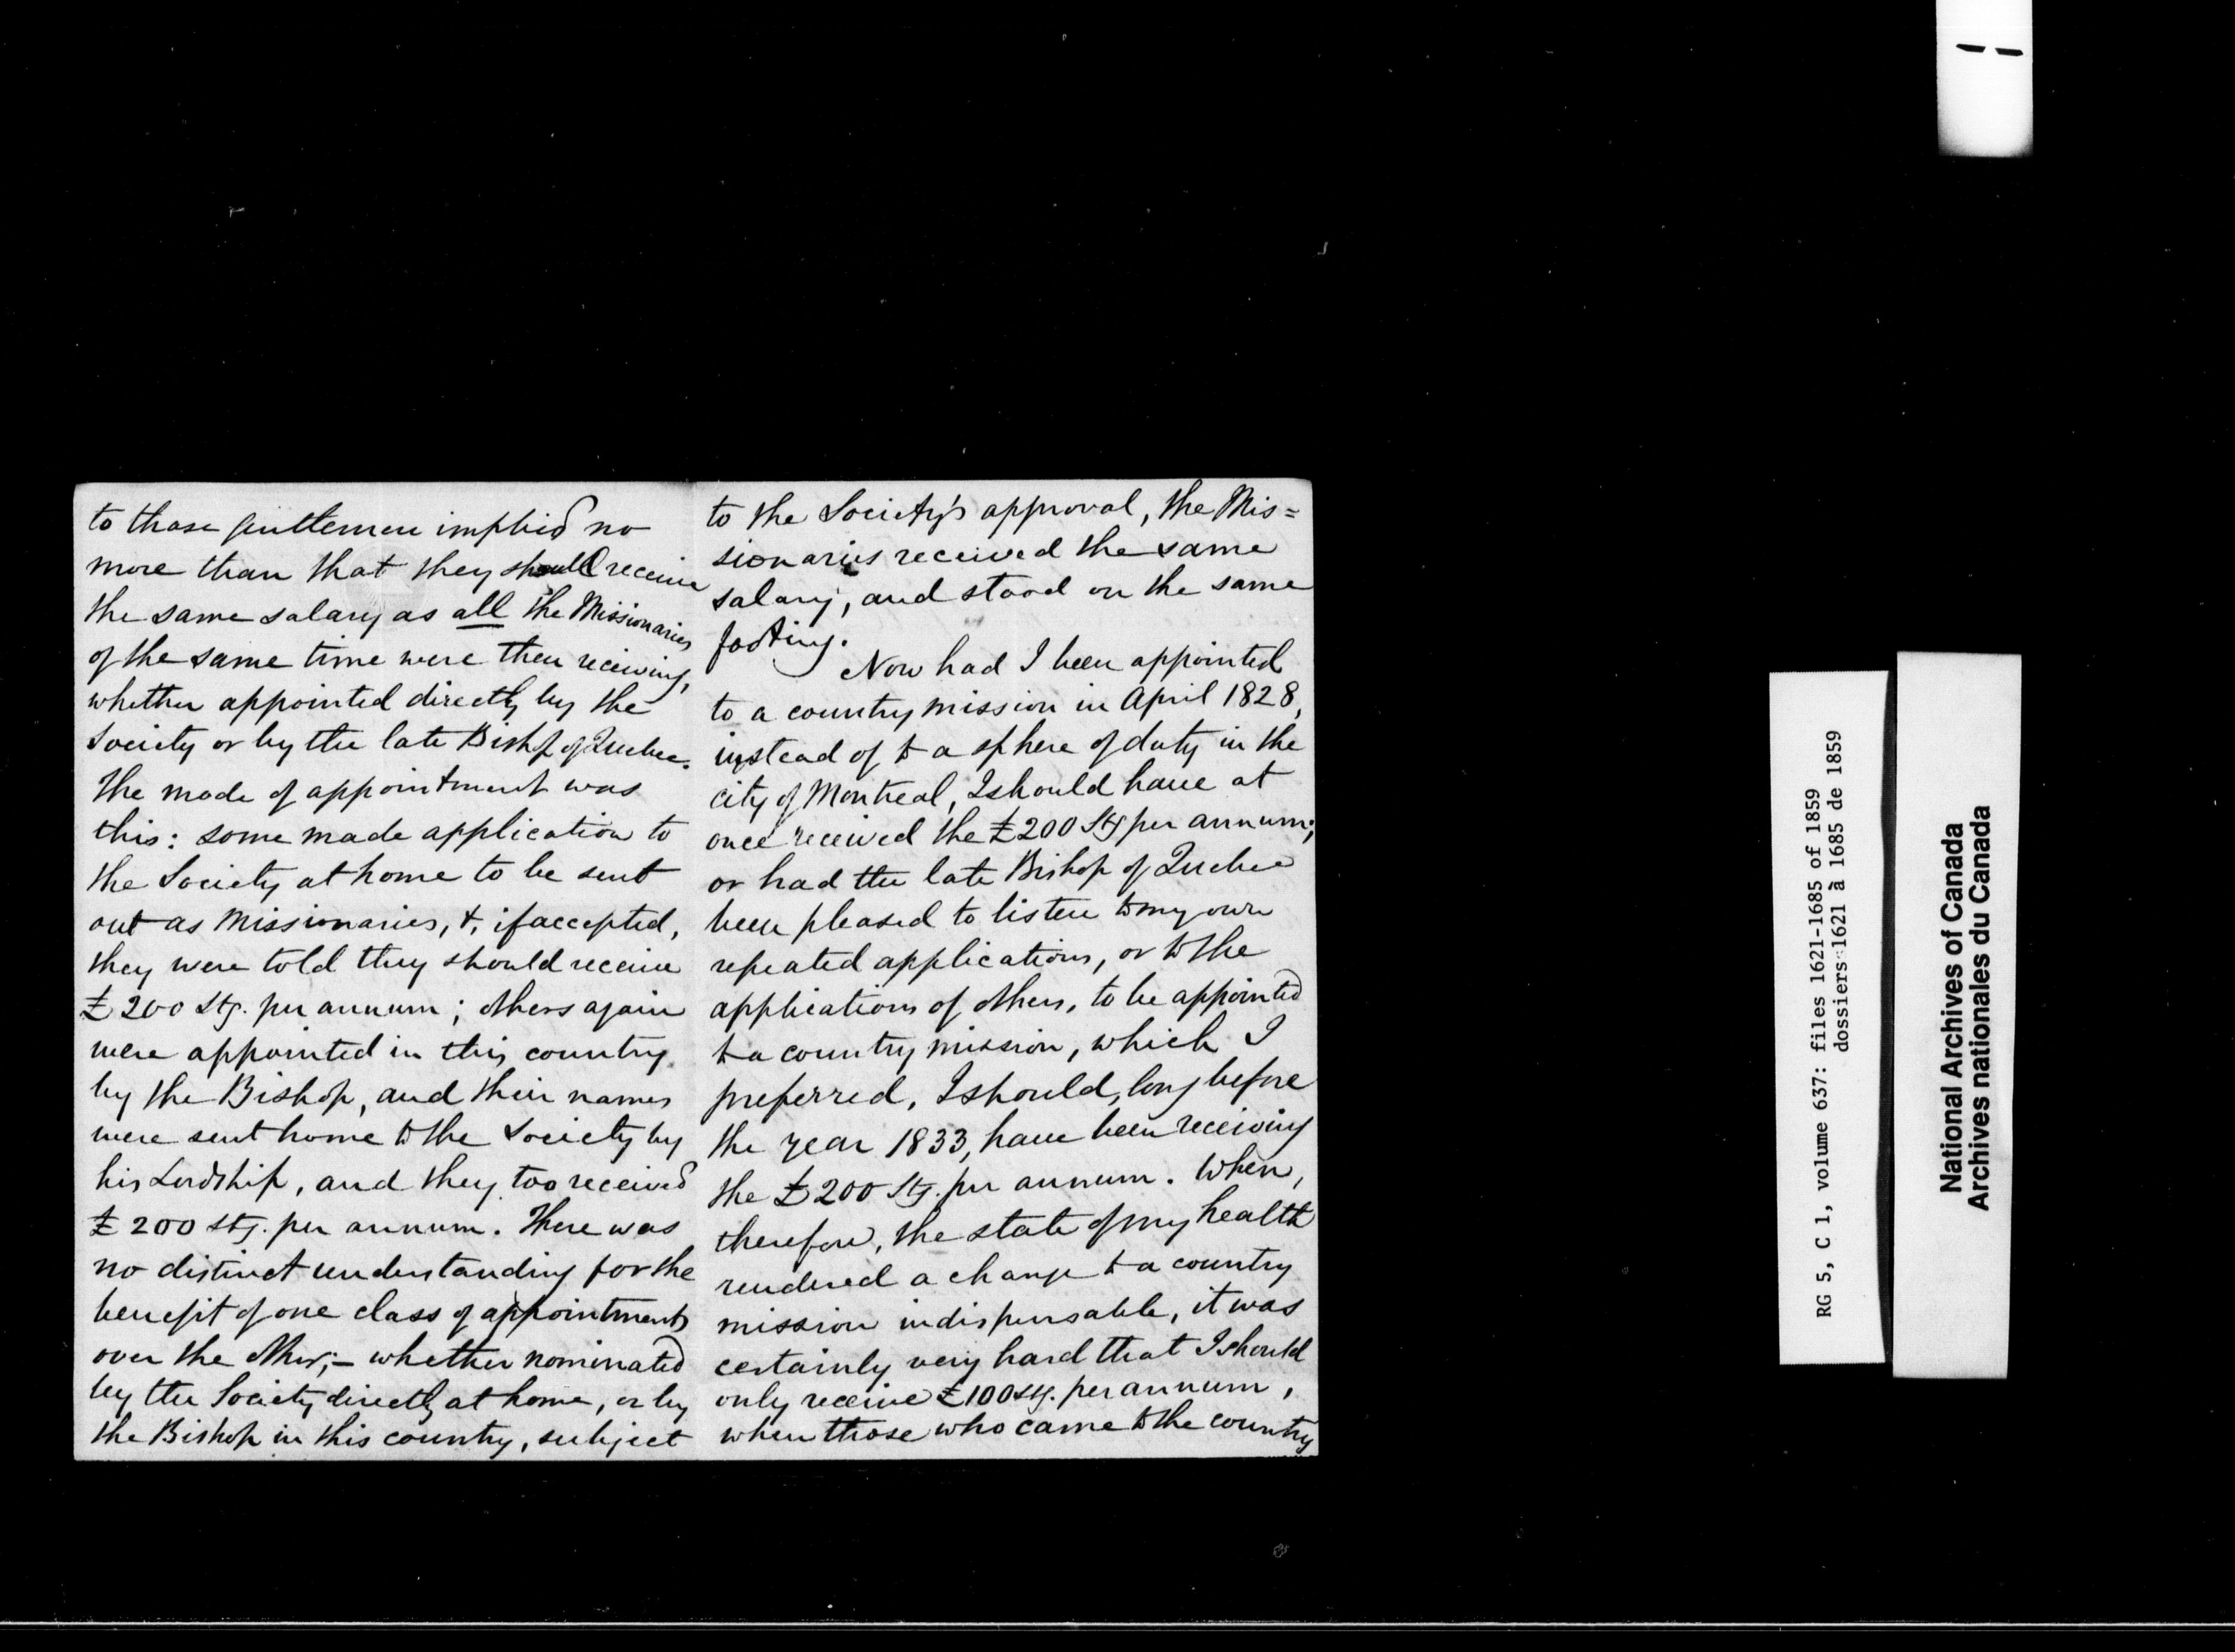 to those gentlemen implied no
more than that they should receive
the same salary as all the Missionaries
of the same time were then receiving,
whether appointed directly by the
Society or by the late Bishp of Quebec.
The mode of appointment was
this: some made application to
the Society at home to be sent
out as Missionaries, &, if accepted,
they were told they should receive
£200 Stg. per annum; others again
were appointed in this country
by the Bishop, and their names
were sent home to the Society by
his Lordship, and they too received
£200 stg. per annum. There was
no distinct understanding for the
benefit of one class of appointments
over the other;– whether nominated
by the Society directly at home, or by
the Bishop in this country, subject
to the Society's approval, the Mis=
sionaries received the same
salary, and stood on the same
footing.
Now had I been appointed
to a country mission in April 1828,
instead of to a sphere of duty in the
city of Montreal, I should have at
once received the £200 Stg per annum;
or had the late Bishop of Quebec
been pleased to listen to my own
repeated applications, or to the
applications of others, to be appointed
to a country mission, which I
preferred, I should, long before
the year 1833, have been receiving
the £200 Stg. per annum. When,
therefore, the state of my health
rendered a change to a country
mission indispensable, it was
certainly very hard that I should
only receive £100 stg. per annum,
when those who came to the country
RG 5, C 1, volume 637: files 1621-1685 of 1859
dossiers 1621 à 1685 de 1859
National Archives of Canada
Archives nationales du Canada